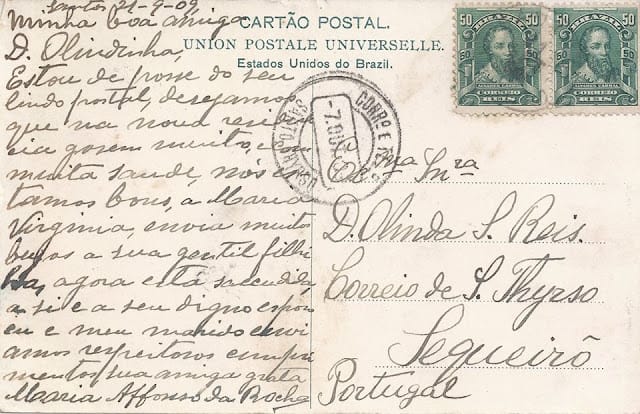 Santos 21-9-09
Minha boa amiga
D. Olindinha,
Estou de posse do seu
lindo postal, desejamos
que na nova residen
cia gosem muito, e com
muita saude, nós es
tamos bons, a Maria
Virginia, envia muitos
beijos a sua gentil filhi
nha, agora esta
a si e a seu digno esposo
eu e meu marido envi
amos respeitosos cumpri
mentos sua amiga grata
Maria Affonso da Rocha
CARTÃO POSTAL.
UNION POSTALE UNIVERSELLE.
Estados Unidos do Brazil.
50 BRAZIL 50
CORREIO
REIS
50 BRAZIL 50
CORREIO
REIS
SANTO THYRSO
7. OUT
CORRº E TELº
Sra
D. Olinda S. Reis.
Correio de S. Thyrso
Sequeirô
Portugal